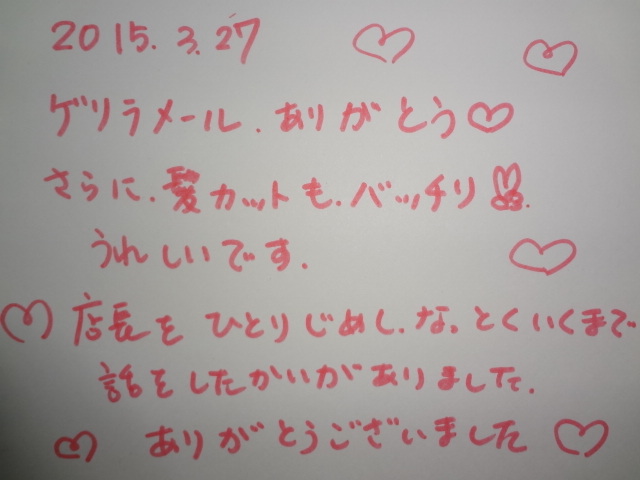 2015.3.27
ゲリラメール.ありがとう♡
さらに.髪カットも.バッチリ✌.
うれしいです.
店長を ひとりじめし.な。とくいくまで
話をしたかいがありました.
ありがとうございました